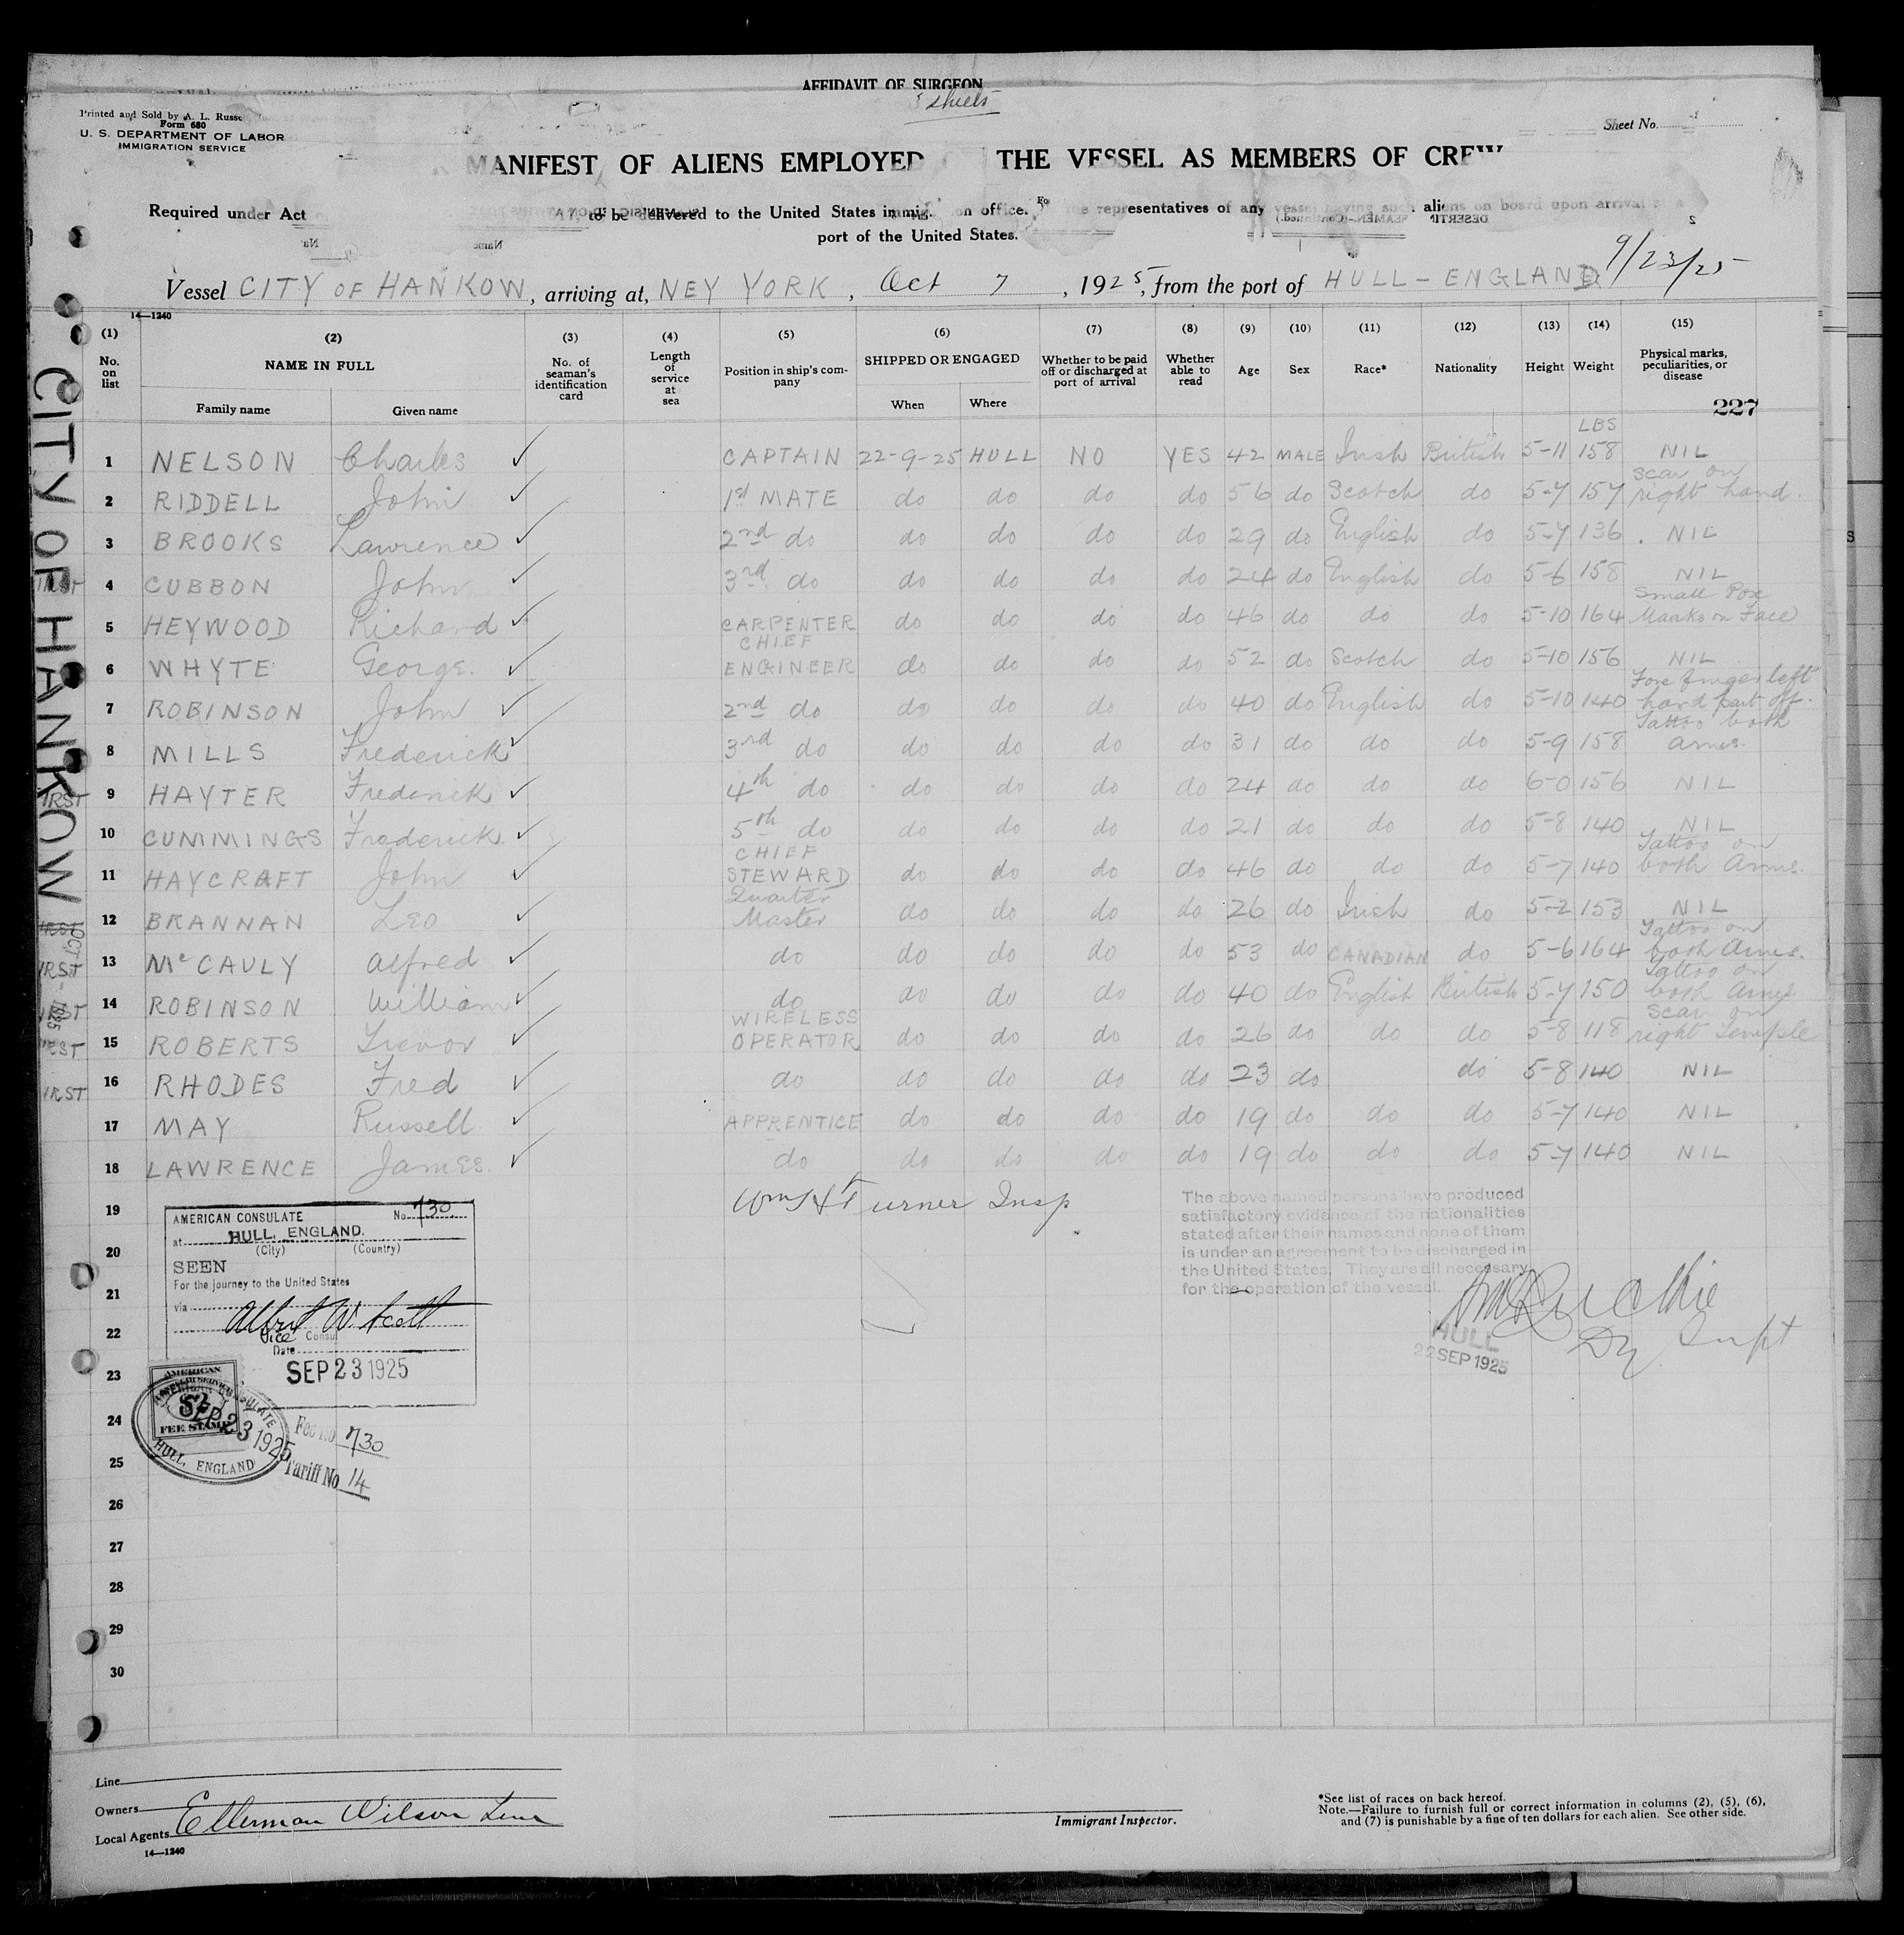 AFFIDAVIT OF SURGEON
sheets
Printed and Sold by A. L. Russe
Form 680
U. S. DEPARTMENT OF LABOR
IMMIGRATION SERVICE
Sheet No.
MANIFEST OF ALIENS EMPLOYED THE VESSEL AS MEMBERS OF CREW
Required under Act to be delivered to the United States immig on office. representatives of any vessel having such aliens on board upon arrival at a
port of the United States.
Vessel CITY OF HANKOW, arriving at, NEY YORK, Oct 7, 1925, from the port of HULL - ENGLAND 9/23/25
14—1240
(1) (2) (3) (4) (5) (6) (7) (8) (9) (10) (11) (12) (13) (14) (15)
No. on list NAME IN FULL No. of seaman's identification card Length of service at sea Position in ship's company SHIPPED OR ENGAGED Whether to be paid off or discharged at port of arrival Whether able to read Age Sex Race* Nationality Height Weight Physical marks, peculiarities, or disease
Family name Given name When Where
227
LBS
1 NELSON Charles ✓ CAPTAIN 22-9-25 HULL NO YES 42 MALE Irish British 5-11 158 NIL
2 RIDDELL John ✓ 1st MATE do do do do 56 do Scotch do 5-7 157 Scar on right hand.
3 BROOKS Lawrence ✓ 2nd do do do do do 29 do English do 5-7 136 NIL
4 CUBBON John ✓ 3rd do do do do do 24 do English do 5-6 158 NIL
5 HEYWOOD Richard ✓ CARPENTER do do do do 46 do do do 5-10 164 Small Pox Marks on Face
6 WHYTE George. ✓ CHIEF ENGINEER do do do do 52 do Scotch do 5-10 156 NIL
7 ROBINSON John ✓ 2nd do do do do do 40 do English do 5-10 140 Fore finger left hand part off.
8 MILLS Frederick ✓ 3rd do do do do do 31 do do do 5-9 158 Tattoo both arms.
9 HAYTER Frederick ✓ 4th do do do do do 24 do do do 6-0 156 NIL
10 CUMMINGS Frederick. ✓ 5th do do do do do 21 do do do 5-8 140 NIL
11 HAYCRAFT John ✓ CHIEF STEWARD do do do do 46 do do do 5-7 140 Tattoo on both Arms.
12 BRANNAN Leo ✓ Quarter Master do do do do 26 do Irish do 5-2 153 NIL
13 McCAULY Alfred ✓ do do do do do 53 do CANADIAN do 5-6 164 Tattoo on both Arms.
14 ROBINSON William ✓ do do do do do 40 do English British 5-7 150 Tattoo on both Arms.
15 ROBERTS Trevor ✓ WIRELESS OPERATOR do do do do 26 do do do 5-8 118 Scar on right Temple
16 RHODES Fred ✓ do do do do do 23 do do 5-8 140 NIL
17 MAY Russell ✓ APPRENTICE do do do do 19 do do do 5-7 140 NIL
18 LAWRENCE James. ✓ do do do do do 19 do do do 5-7 140 NIL
19
20
21
22
23
24
25
26
27
28
29
30
CITY OF HANKOW
OCT - 1925
IRST
IRST
IRST
IRST
IRST
IRST
IRST
Wm H Turner Insp
The above named persons have produced
satisfactory evidence of the nationalities
stated after their names and none of them
is under an agreement to be discharged in
the United States. They are all necessary
for the operation of the vessel.
Dy Supt
HULL
22 SEP 1925
AMERICAN CONSULATE No. 730
at HULL, ENGLAND.
(City) (Country)
SEEN
For the journey to the United States
via
Albert W. Scott
Vice Consul
Date
SEP 23 1925
AMERICAN
FEE STAMP
SEP 23 1925
HULL, ENGLAND
Fee No 730
Tariff No 14
Line
Owners
Local Agents Ellerman Wilson Line
14—1240
Immigrant Inspector.
*See list of races on back hereof.
Note.—Failure to furnish full or correct information in columns (2), (5), (6),
and (7) is punishable by a fine of ten dollars for each alien. See other side.